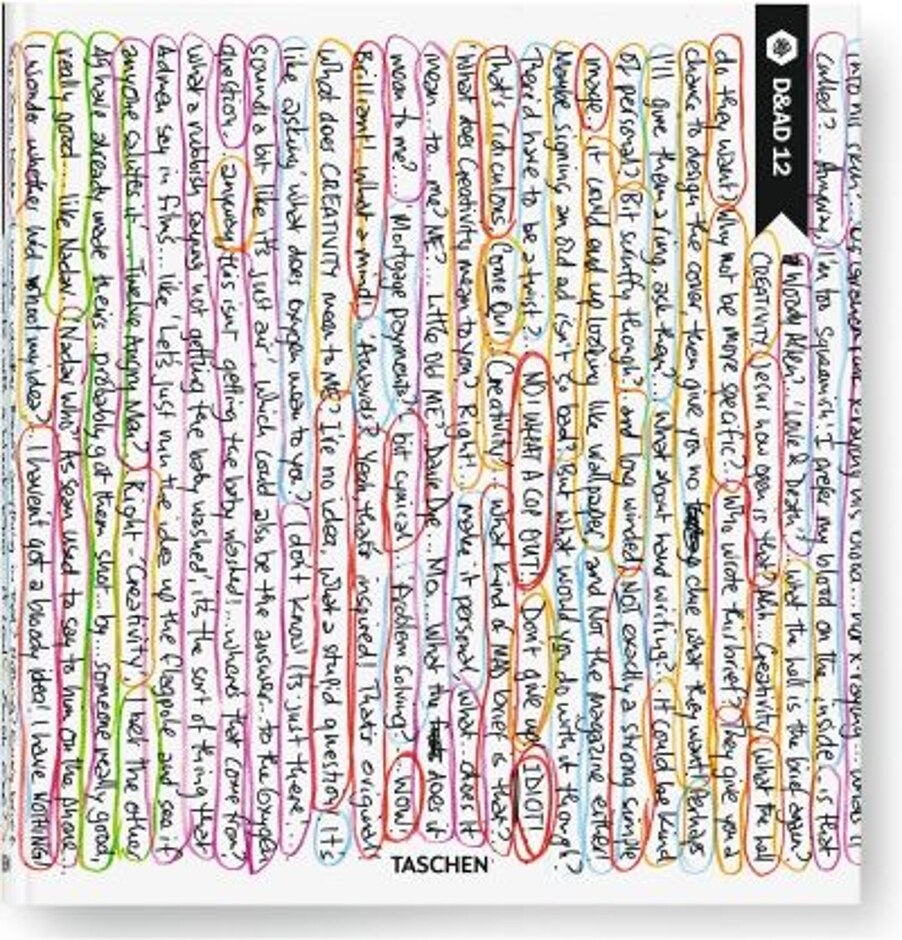 D&AD 12
called?... Anyway, I'm too squeamish! I prefer my blood on the inside.. is that
Woody Allen?.. 'Love & Death'... what the hell is the brief again?
CREATIVITY! Jesus how open is that? Ahh... Creativity, what the hell
do they want? Why not be more specific? Who wrote this brief? They give you a
chance to design the cover, then give you no clue what they want! Perhaps
I'll give them a ring, ask them? What about hand writing?.. it could be kind
of personal? Bit scruffy though? and long winded. NOT exactly a strong simple
image.. it could end up looking like wallpaper and NOT the magazine either!
Maybe signing an old ad isn't so bad? But what would you do with it though?
There'd have to be a twist?. NO, WHAT A COP OUT! Don't give up IDIOT!
That's ridiculous! Come on! Creativity! What kind of MAD brief is that?
'What does Creativity mean to you?' Right! make it personal, what.. does it
mean... to me? ME?... Little old ME? Dave Dye... Mo... What the does it
mean to me?... 'Mortgage payments?' bit cynical.. 'Problem Solving?'.. WOW!
Brilliant! What a mind! 'Awards?' Yeah, that's inspired! That's original!
What does CREATIVITY mean to ME? I've no idea, What a stupid question! It's
like asking 'what does oxygen mean to you?' I don't know! It's just there!..
sounds a bit like 'it's just air', which could also be the answer.. to the oxygen
question.. anyway, this isn't getting the baby washed!.. where's that come from?
What a rubbish saying 'not getting the baby washed', it's the sort of thing that
Admen say in films... like 'Let's just run the idea up the flagpole and see if
anyone salutes it'... Twelve Angry Men? Right - Creativity! I bet the other
have already made theirs... probably got them shot... by... someone really good,
really good... like Nadav. 'Nadav who?' As Sean used to say to him on the phone..
I wonder whether who shoot my idea? I haven't got a bloody idea! I have NOTHING!
TASCHEN